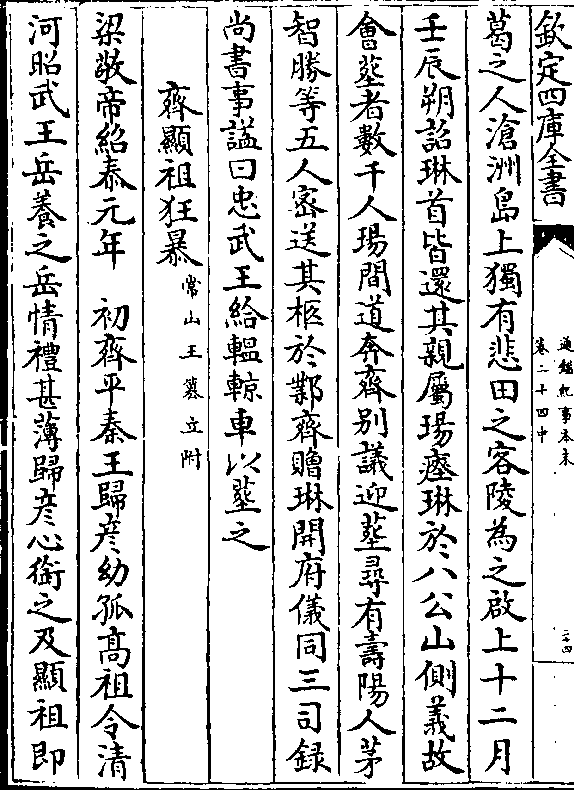 欽定四庫全書
通鑑紀事本末
卷二十四中
三四
葛之人滄洲島上獨有悲田之客陵為之啟上十二月
壬辰朔詔琳首皆還其親屬瑒瘞琳於八公山側義故
會𦵏者數千人瑒間道奔齊别議迎𦵏尋有壽陽人茅
智勝等五人宻送其柩於鄴齊贈琳開府儀同三司録
尚書事諡曰忠武王給轀輬車以𦵏之
齊顯祖狂暴常山王簒立附
梁敬帝紹泰元年 初齊平秦王歸彦幼孤髙祖令清
河昭武王岳養之岳情禮甚薄歸彦心銜之及顯祖即